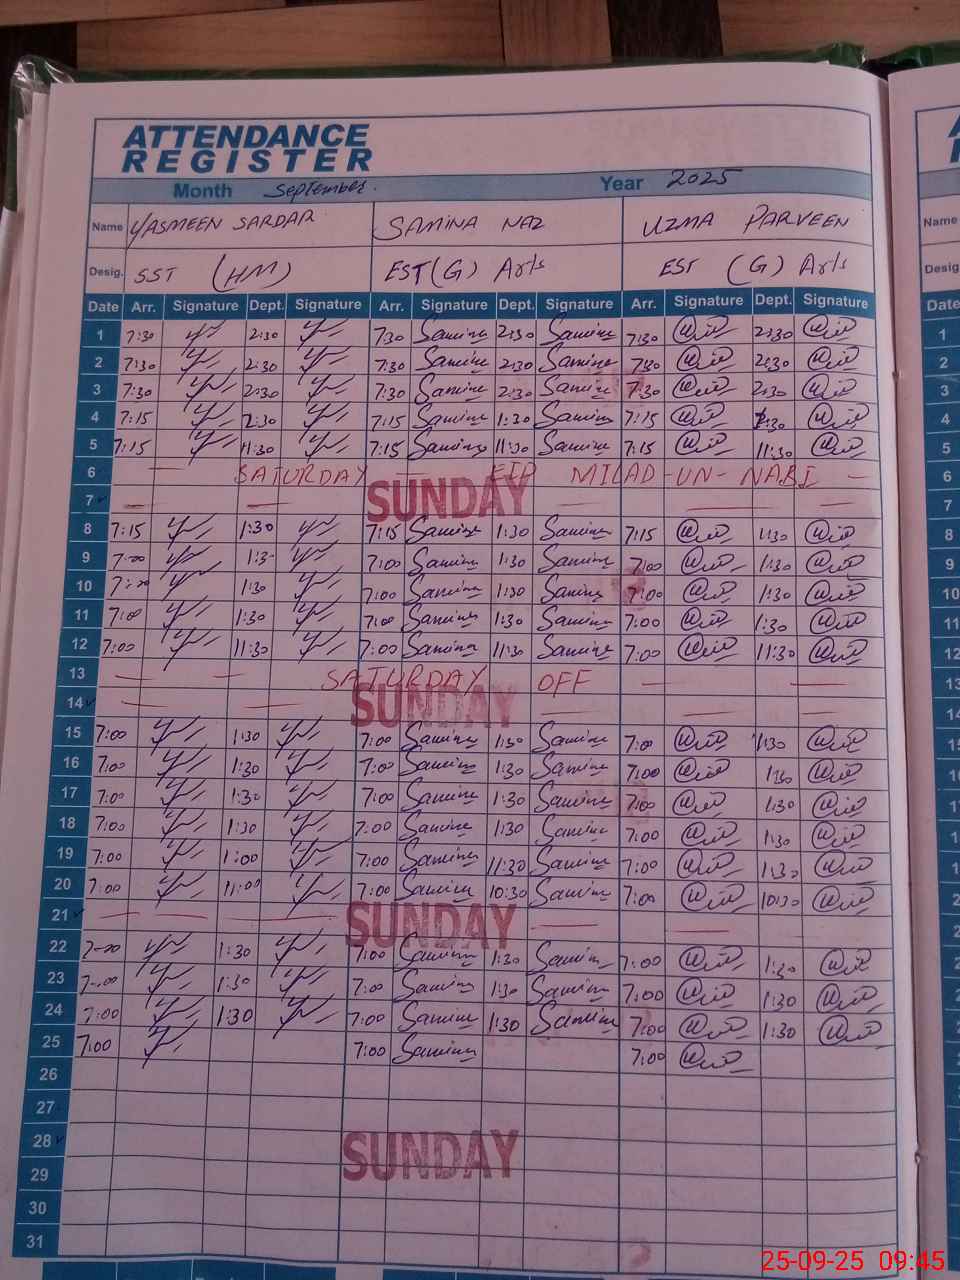 ATTENDANCE
REGISTER
Month September. Year 2025
Name YASMEEN SARDAR SAMINA NAZ UZMA PARVEEN Name
Desig. SST (HM) EST(G) Arts EST (G) Arts Desig
Date Arr. Signature Dept. Signature Arr. Signature Dept. Signature Arr. Signature Dept. Signature Date
1 7:30 2:30 7:30 Samina 2:30 Samina 7:30 2:30 1
2 7:30 2:30 7:30 Samina 2:30 Samina 7:30 2:30 2
3 7:30 2:30 7:30 Samina 2:30 Samina 7:30 2:30 3
4 7:15 2:30 7:15 Samina 1:30 Samina 7:15 2:30 4
5 7:15 11:30 7:15 Samina 11:30 Samina 7:15 11:30 5
6 SATURDAY EID MILAD-UN-NABI 6
7 SUNDAY 7
8 7:15 1:30 7:15 Samina 1:30 Samina 7:15 1:30 8
9 7-00 1:3- 7:00 Samina 1:30 Samina 7:00 1:30 9
10 7:00 1:30 7:00 Samina 1:30 Samina 7:00 1:30 10
11 7:00 1:30 7:00 Samina 1:30 Samina 7:00 1:30 11
12 7:00 11:30 7:00 Samina 11:30 Samina 7:00 11:30 12
13 SATURDAY OFF 13
14 SUNDAY 14
15 7:00 1:30 7:00 Samina 1:30 Samina 7:00 1:30 15
16 7:00 1:30 7:00 Samina 1:30 Samina 7:00 1:30 16
17 7:00 1:30 7:00 Samina 1:30 Samina 7:00 1:30
18 7:00 1:30 7:00 Samina 1:30 Samina 7:00 1:30
19 7:00 1:00 7:00 Samina 11:30 Samina 7:00 11:30
20 7:00 11:00 7:00 Samina 10:30 Samina 7:00 10:30
21 SUNDAY
22 7-00 1:30 7:00 Samina 1:30 Samina 7:00 1:30
23 7-00 1:30 7:00 Samina 1:30 Samina 7:00 1:30
24 7:00 1:30 7:00 Samina 1:30 Samina 7:00 1:30
25 7:00 7:00 Samina 7:00
26
27
28 SUNDAY
29
30
31
25-09-25 09:45